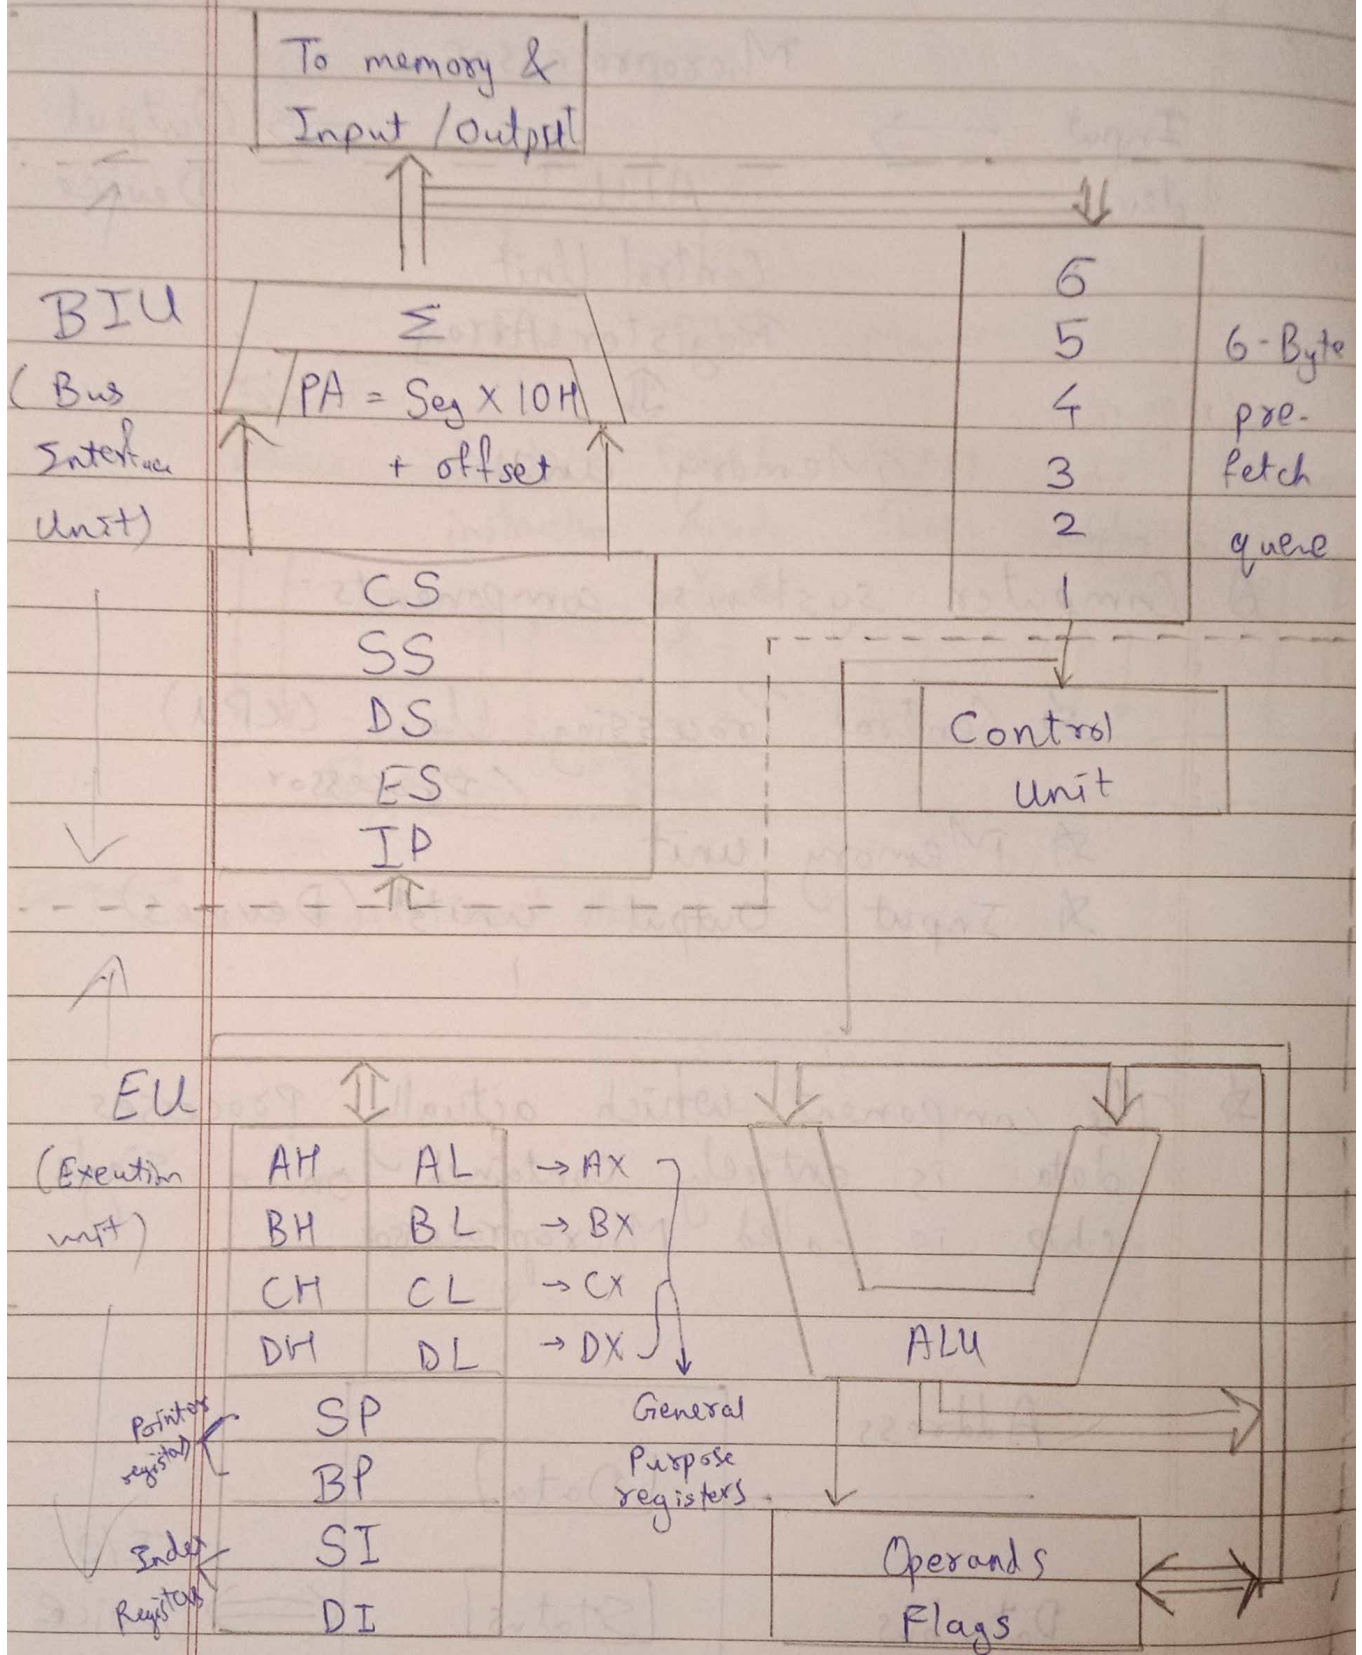 To memory &
Input / Output
BIU
(Bus
Interface
Unit)
Σ
PA = Seg X 10H
+ offset
6
5
4
3
2
1
6-Byte
pre-
fetch
queue
CS
SS
DS
ES
IP
Control
Unit
EU
(Execution
unit)
AH AL → AX
BH BL → BX
CH CL → CX
DH DL → DX
General
Purpose
registers
ALU
Pointer
registers
SP
BP
Index
Registers
SI
DI
Operands
Flags